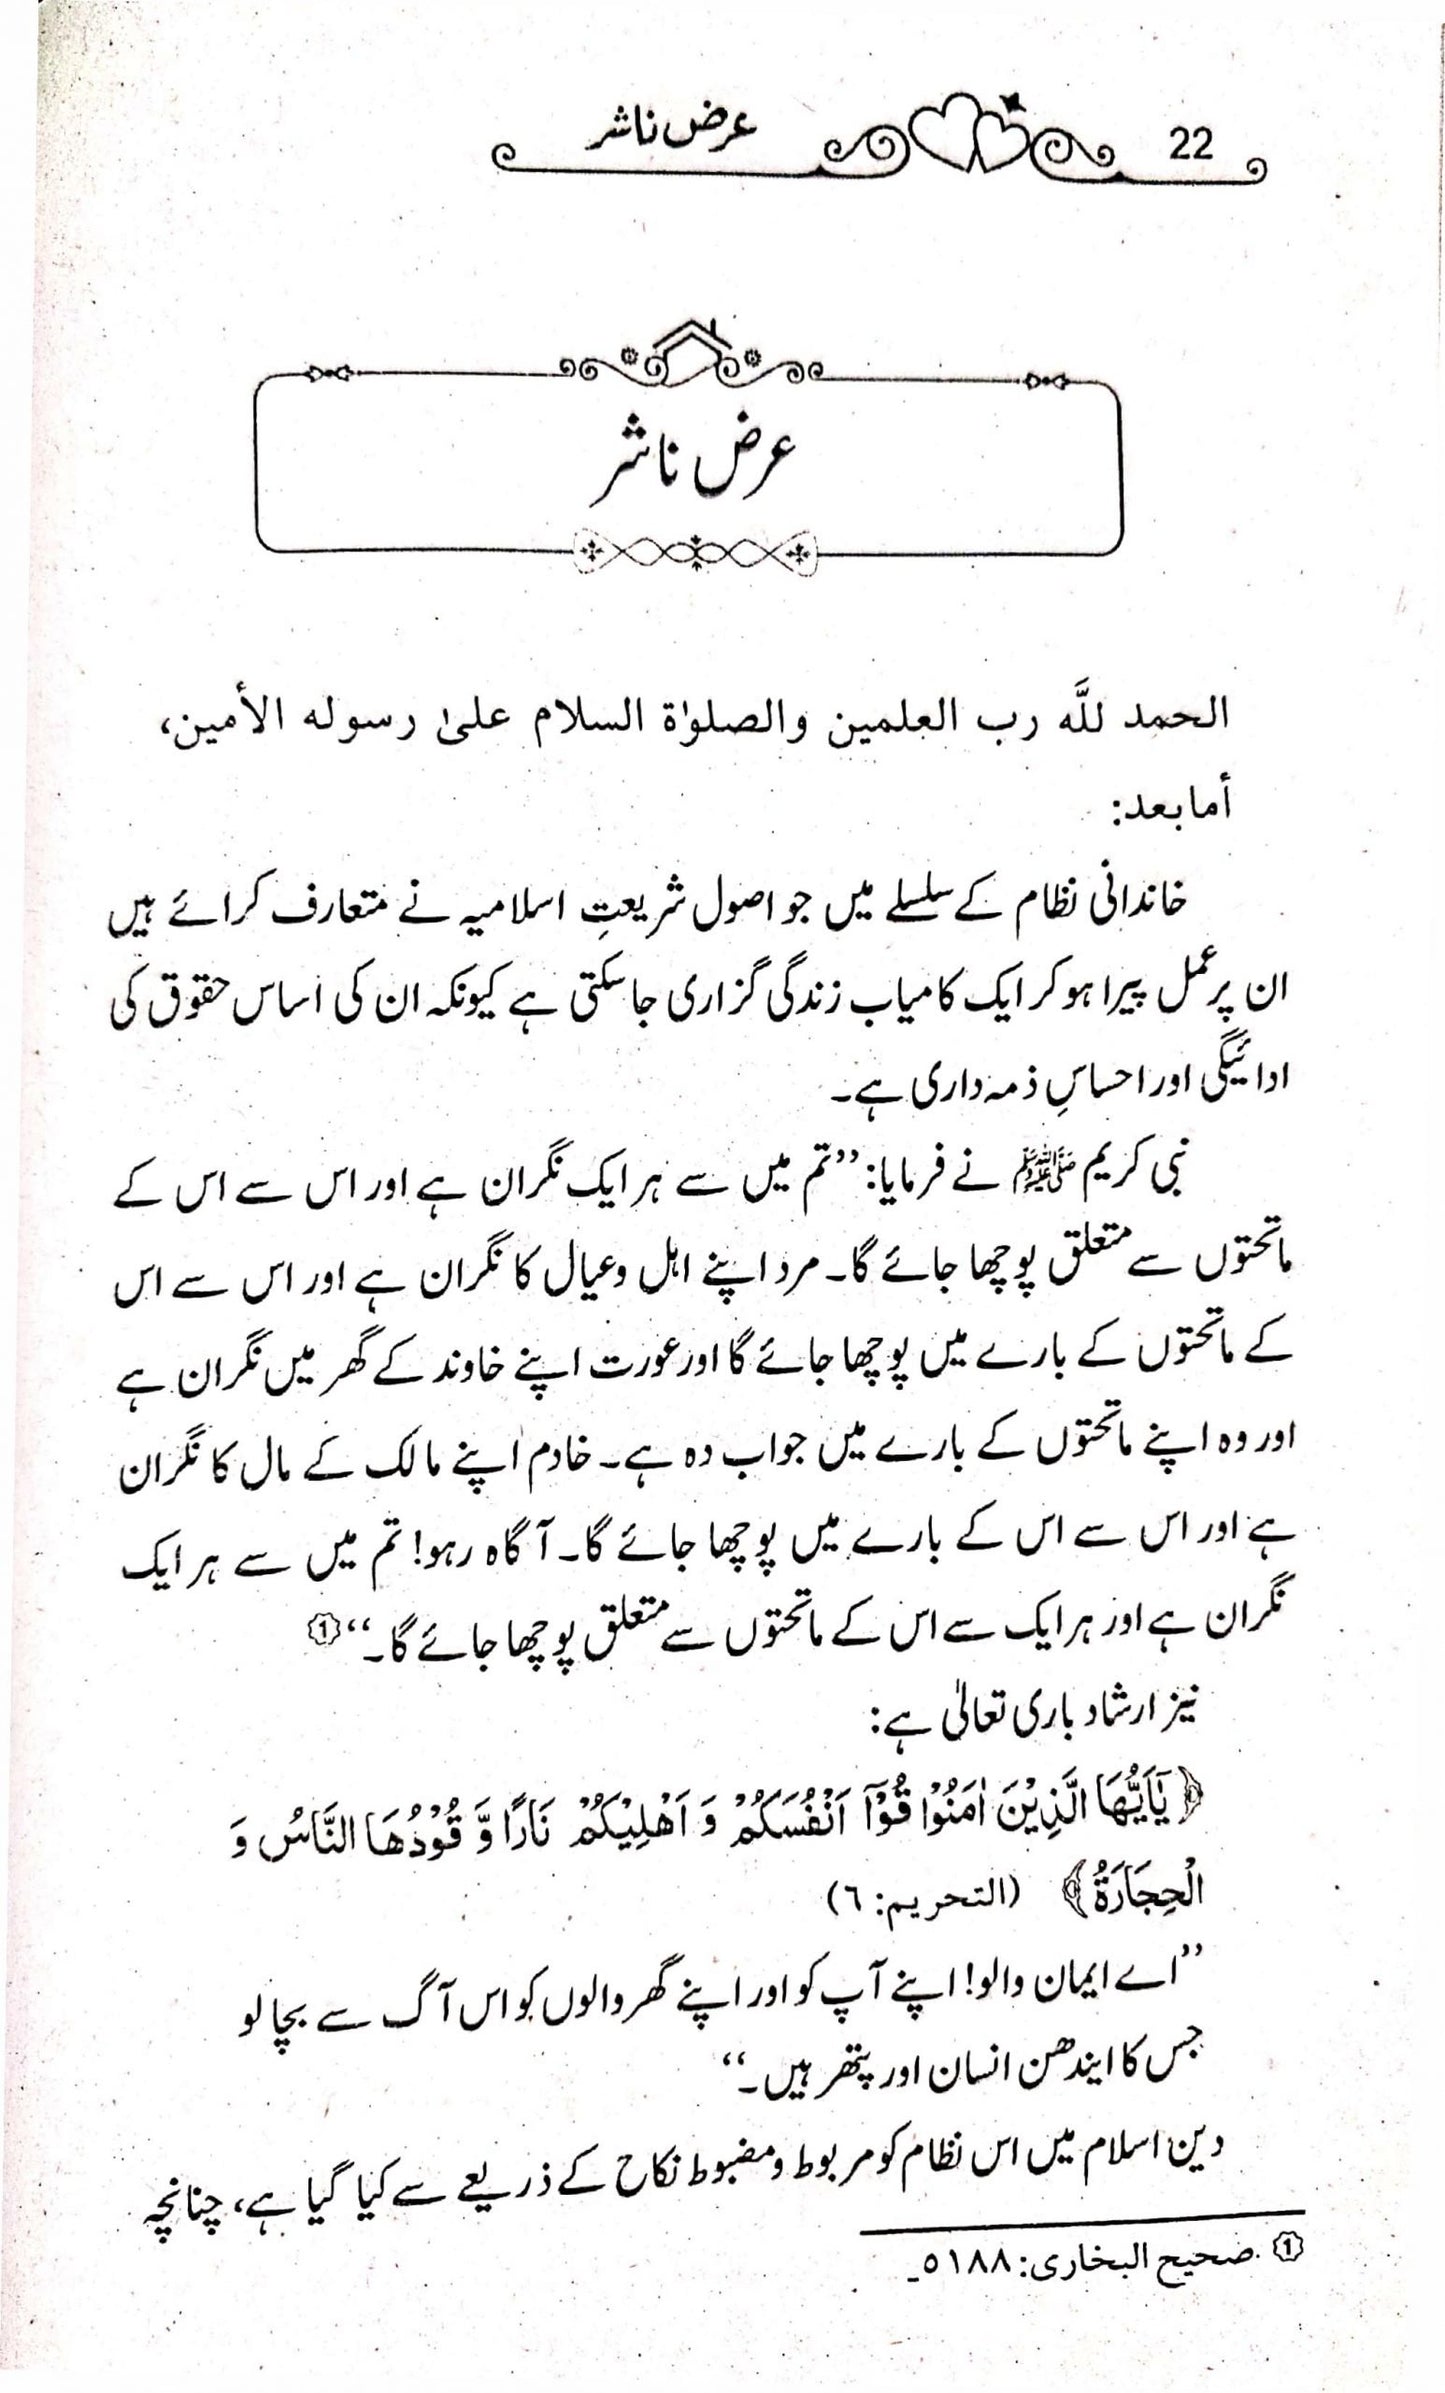 22 عرض ناشر
عرض ناشر
الحمد للَّه رب العلمين والصلوٰة السلام علىٰ رسوله الأمين،
أمابعد:
خاندانی نظام کے سلسلے میں جو اصول شریعتِ اسلامیہ نے متعارف کرائے ہیں
ان پر عمل پیرا ہو کر ایک کامیاب زندگی گزاری جا سکتی ہے کیونکہ ان کی اساس حقوق کی
ادائیگی اور احساسِ ذمہ داری ہے۔
نبی کریم ﷺ نے فرمایا: ’’تم میں سے ہر ایک نگران ہے اور اس سے اس کے
ماتحتوں سے متعلق پوچھا جائے گا۔ مرد اپنے اہل و عیال کا نگران ہے اور اس سے اس
کے ماتحتوں کے بارے میں پوچھا جائے گا اور عورت اپنے خاوند کے گھر میں نگران ہے
اور وہ اپنے ماتحتوں کے بارے میں جواب دہ ہے۔ خادم اپنے مالک کے مال کا نگران
ہے اور اس سے اس کے بارے میں پوچھا جائے گا۔ آگاہ رہو! تم میں سے ہر ایک
نگران ہے اور ہر ایک سے اس کے ماتحتوں سے متعلق پوچھا جائے گا۔‘‘①
نیز ارشاد باری تعالیٰ ہے:
﴿يٰٓاَيُّهَا الَّذِيْنَ اٰمَنُوْا قُوْٓا اَنْفُسَكُمْ وَ اَهْلِيْكُمْ نَارًا وَّ قُوْدُهَا النَّاسُ وَ
الْحِجَارَةُ﴾ (التحریم: ٦)
’’اے ایمان والو! اپنے آپ کو اور اپنے گھر والوں کو اس آگ سے بچا لو
جس کا ایندھن انسان اور پتھر ہیں۔‘‘
دین اسلام میں اس نظام کو مربوط و مضبوط نکاح کے ذریعے سے کیا گیا ہے، چنانچہ
① صحیح البخاری: ٥١٨٨۔